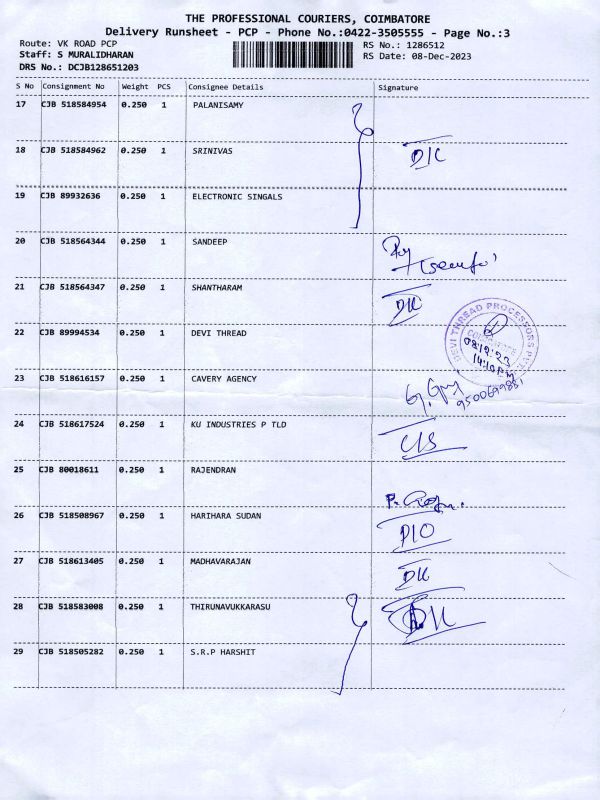 THE PROFESSIONAL COURIERS, COIMBATORE
Delivery Runsheet - PCP - Phone No.:0422-3505555 - Page No.:3
Route: VK ROAD PCP RS No.: 1286512
Staff: S MURALIDHARAN RS Date: 08-Dec-2023
DRS No.: DCJB128651203
S No Consignment No Weight PCS Consignee Details Signature
17 CJB 518584954 0.250 1 PALANISAMY
18 CJB 518584962 0.250 1 SRINIVAS
19 CJB 89932636 0.250 1 ELECTRONIC SINGALS
20 CJB 518564344 0.250 1 SANDEEP
21 CJB 518564347 0.250 1 SHANTHARAM
22 CJB 89994534 0.250 1 DEVI THREAD
DEVI THREAD PROCESSORS PVT.
14:10 PM
23 CJB 518616157 0.250 1 CAVERY AGENCY
24 CJB 518617524 0.250 1 KU INDUSTRIES P TLD
25 CJB 80018611 0.250 1 RAJENDRAN
26 CJB 518508967 0.250 1 HARIHARA SUDAN
27 CJB 518613405 0.250 1 MADHAVARAJAN
28 CJB 518583008 0.250 1 THIRUNAVUKKARASU
29 CJB 518505282 0.250 1 S.R.P HARSHIT